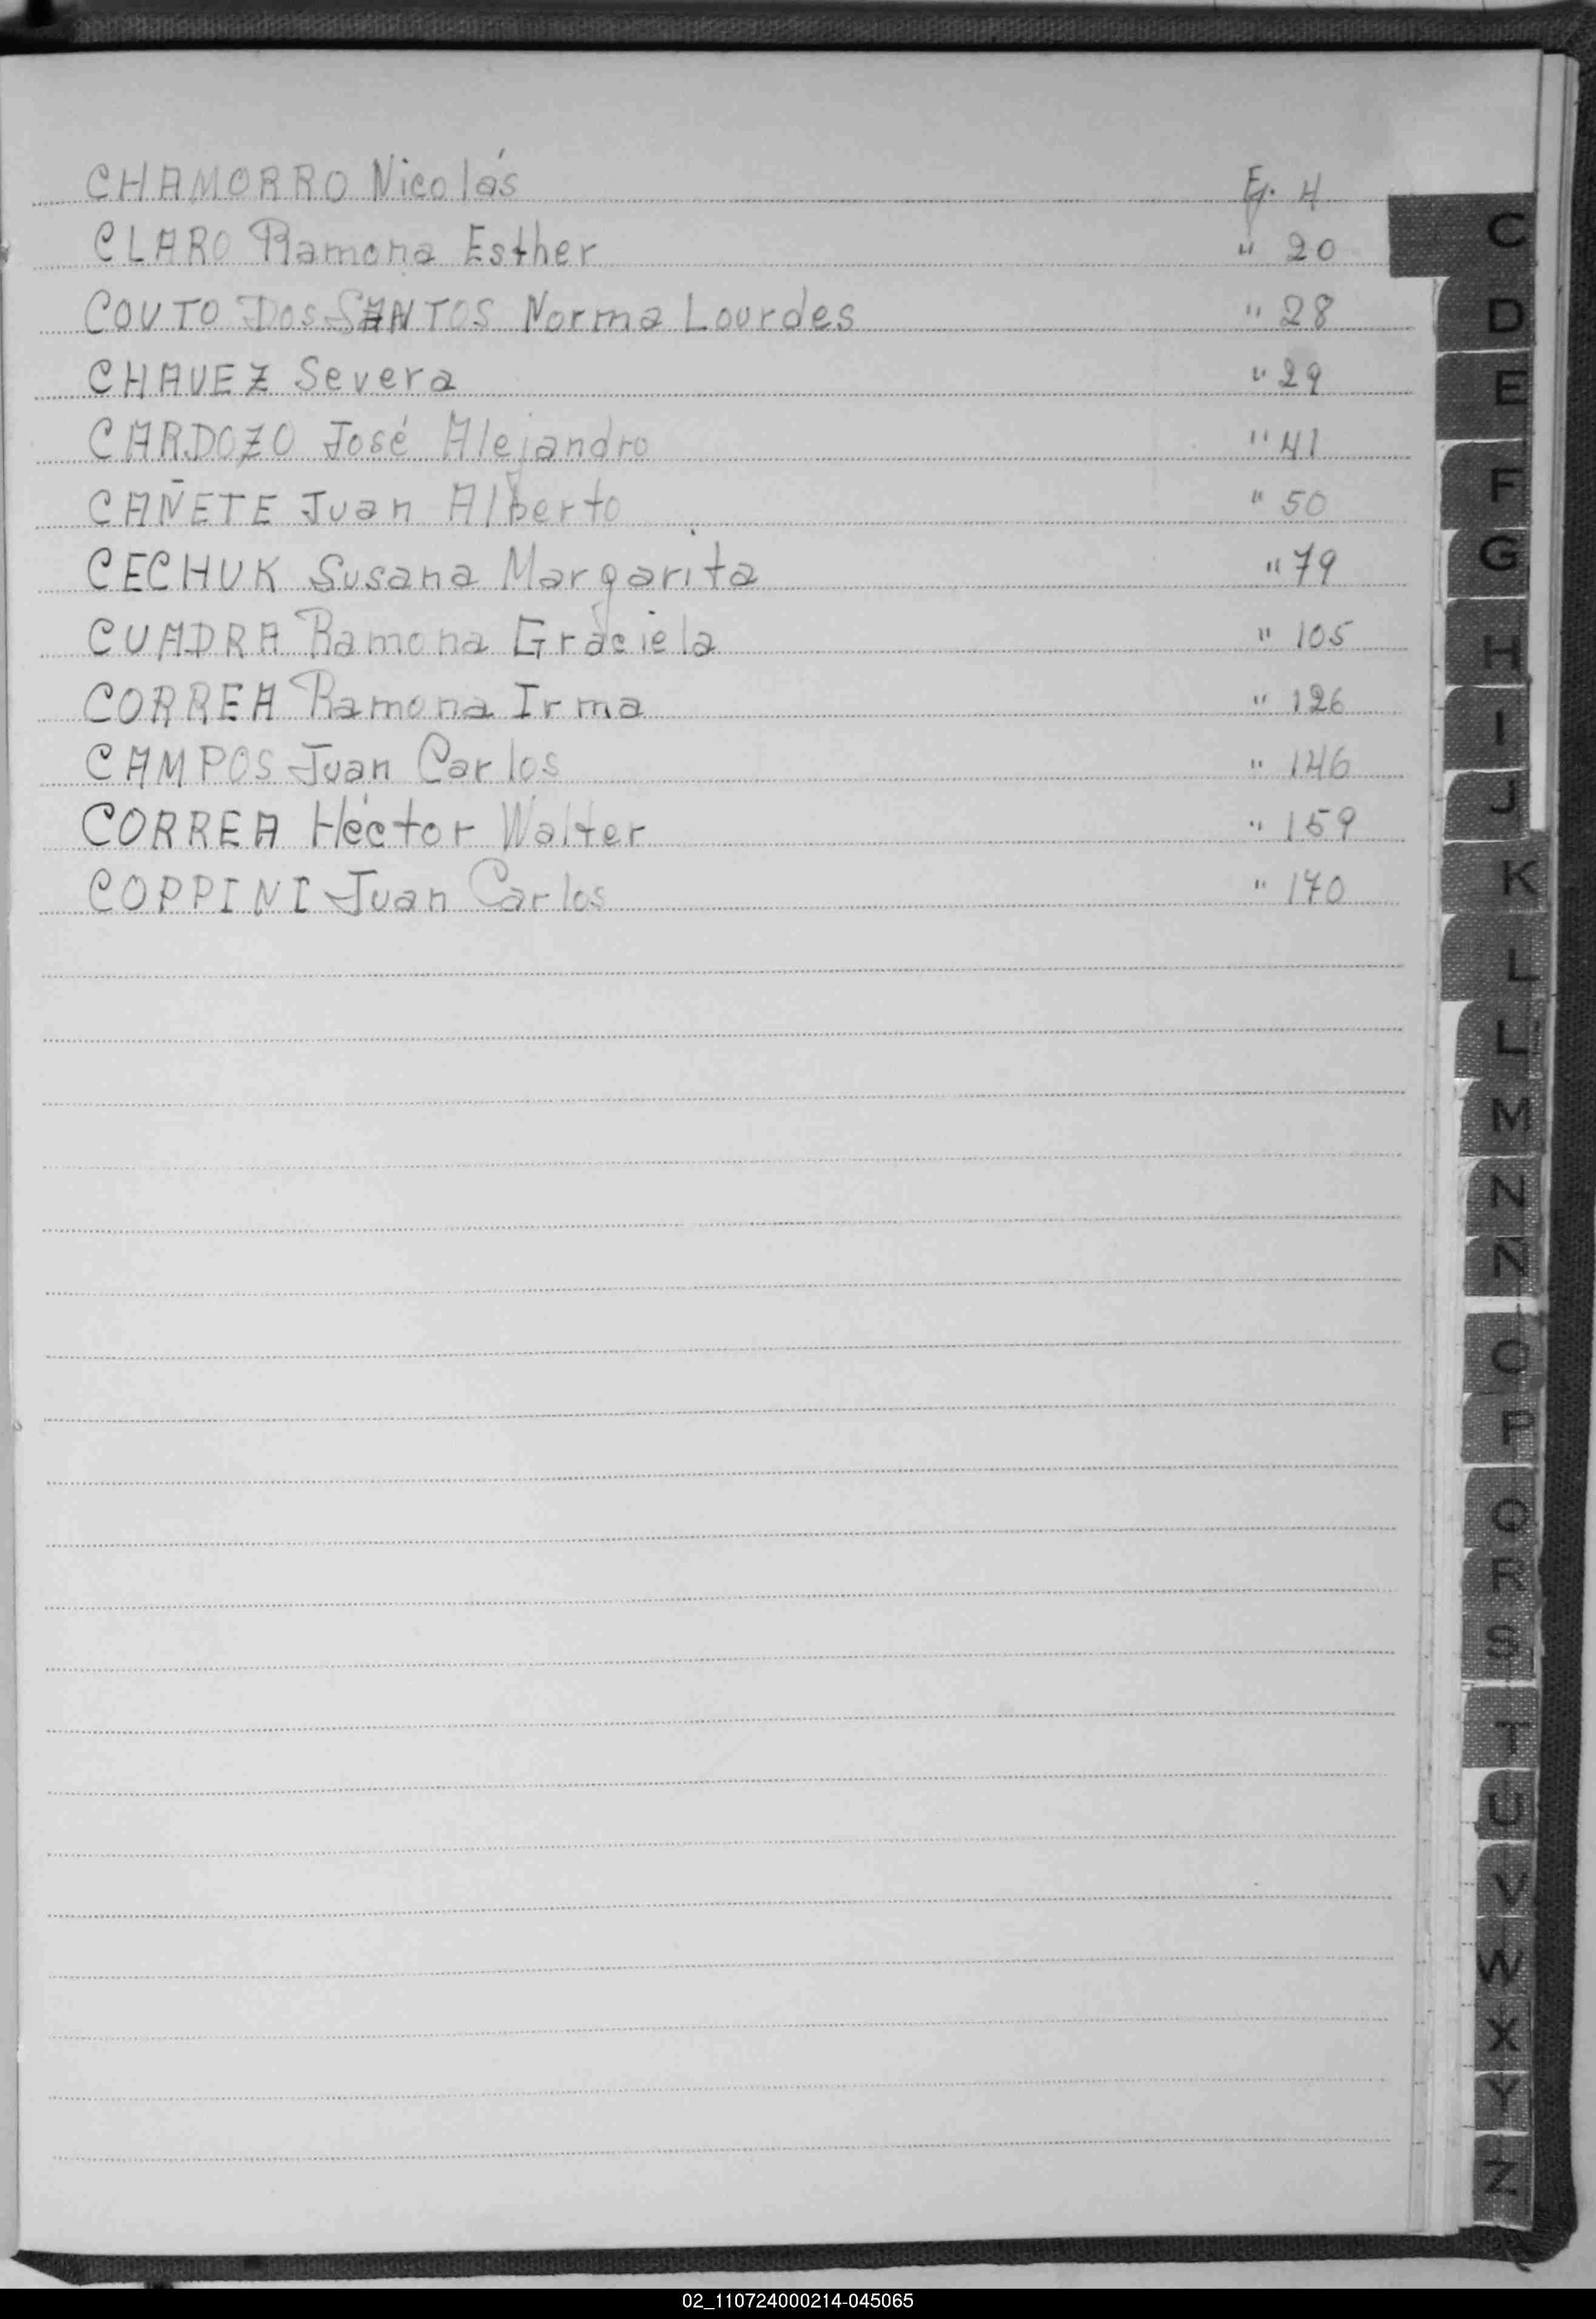 CHAMORRO Nicolás Fj. 4
CLARO Ramona Esther " 20
COUTO Dos SANTOS Norma Lourdes " 28
CHAVEZ Severa " 29
CARDOZO José Alejandro " 41
CAÑETE Juan Alberto " 50
CECHUK Susana Margarita " 79
CUADRA Ramona Graciela " 105
CORREA Ramona Irma " 126
CAMPOS Juan Carlos " 146
CORREA Héctor Walter " 159
COPPINI Juan Carlos " 170
C
D
E
F
G
H
I
J
K
L
L
M
N
Ñ
O
P
Q
R
S
T
U
V
W
X
Y
Z
02_110724000214-045065